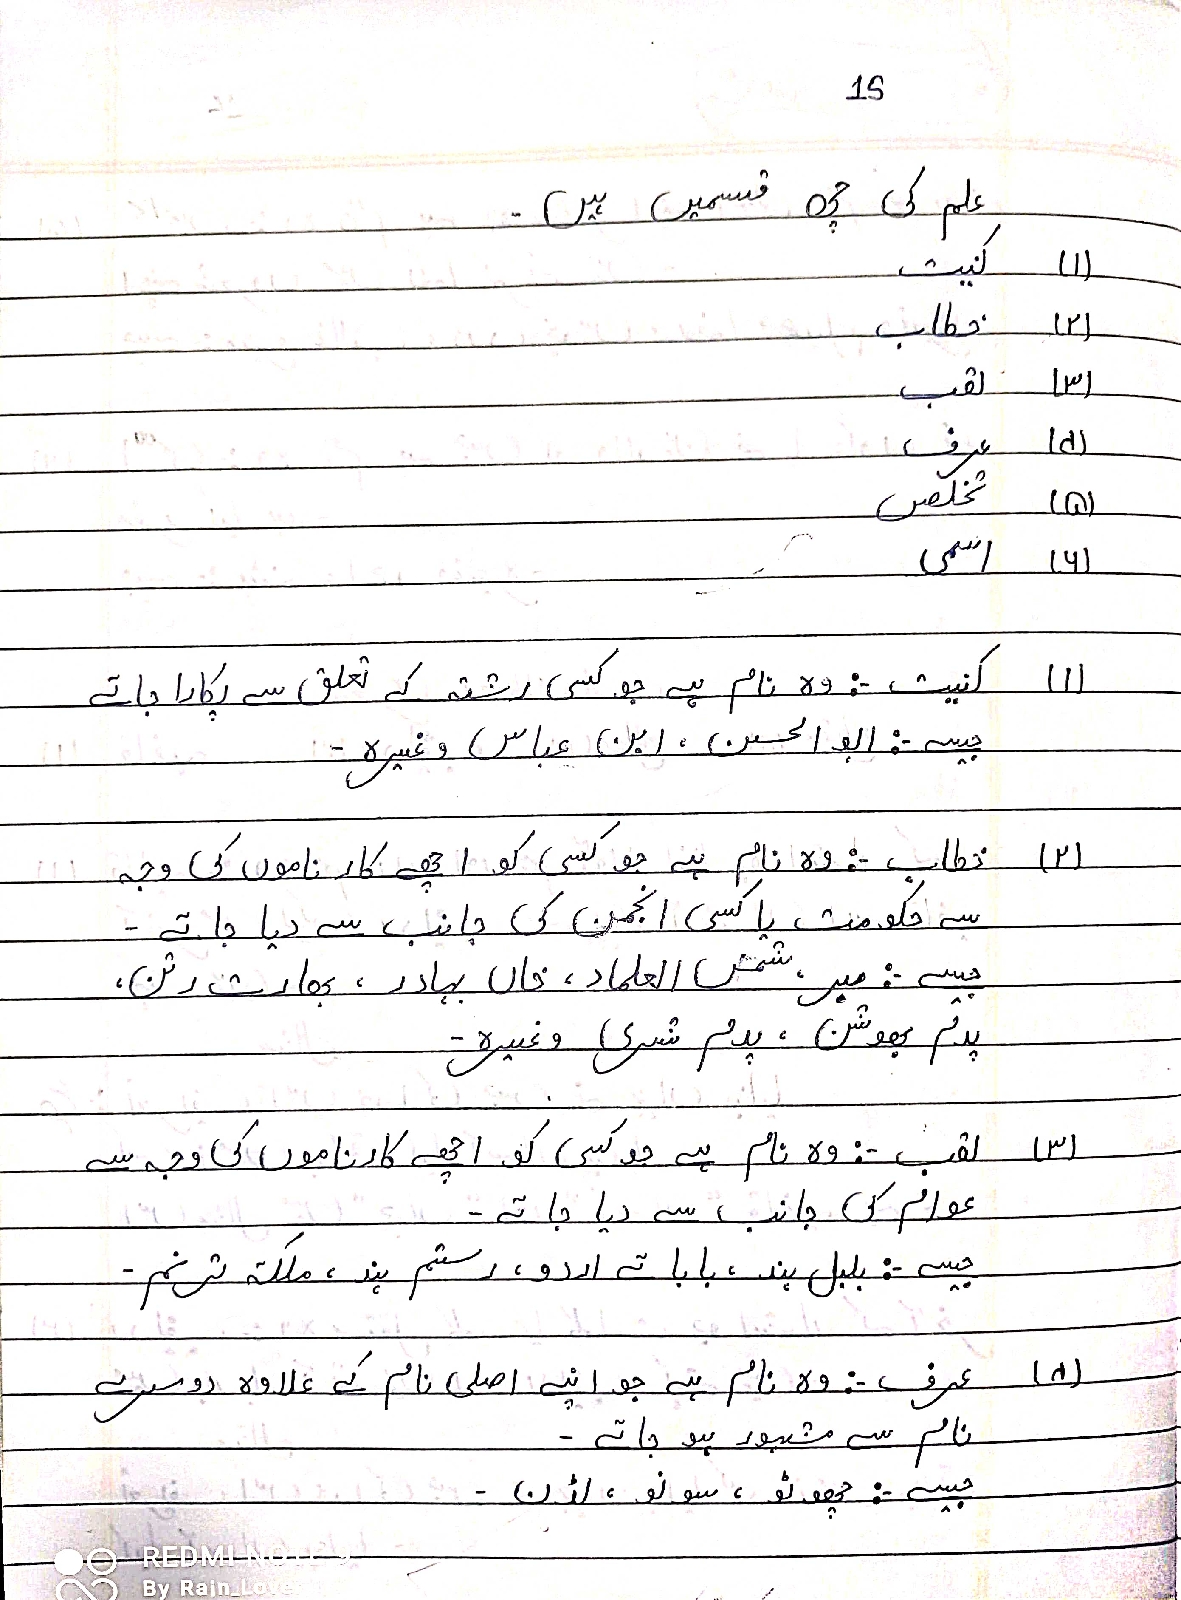 15
علم کی چھ قسمیں ہیں ۔
(۱) کنیت
(۲) خطاب
(۳) لقب
(۴) عرف
(۵) تخلص
(۶) اسمی
(۱) کنیت :- وہ نام ہے جو کسی رشتہ کے تعلق سے پکارا جاتے
جیسے :- ابو الحسن ، ابن عباس وغیرہ -
(۲) خطاب :- وہ نام ہے جو کسی کو اچھے کار ناموں کی وجہ
سے حکومت یا کسی انجمن کی جانب سے دیا جاتے -
جیسے :- میر ، شمس العلماد ، خاں بہادر ، بھارت رتن ،
پدم بھوشن ، پدم شری وغیرہ -
(۳) لقب :- وہ نام ہے جو کسی کو اچھے کارناموں کی وجہ سے
عوام کی جانب سے دیا جاتے -
جیسے :- بلبل ہند ، باباتے اردو ، رستم ہند ، ملکتہ ترنم -
(۴) عرف :- وہ نام ہے جو اپنے اصلی نام کے علاوہ دوسرے
نام سے مشہور ہو جاتے -
جیسے :- چھوٹو ، سونو ، لڈن -
REDMI NOTE 9
By Rain_Lover